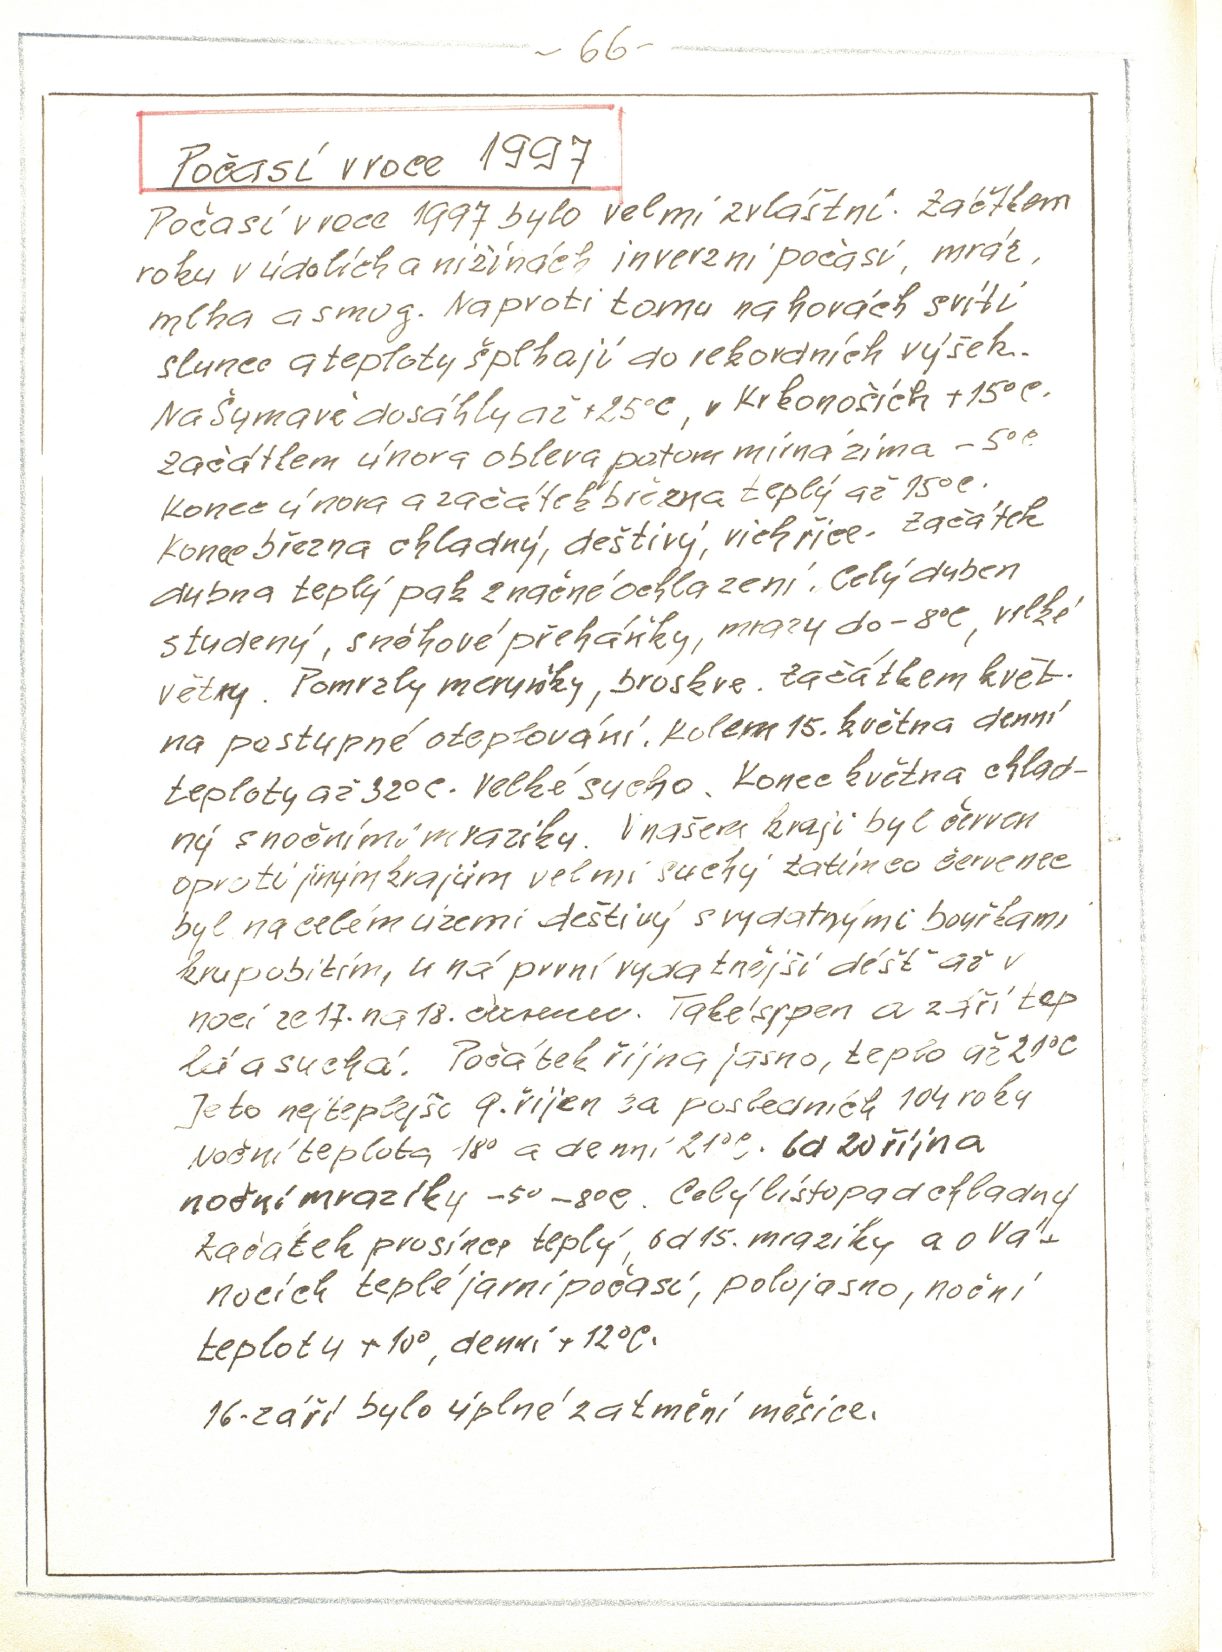 - 66 -
Počasí v roce 1997
Počasí v roce 1997 bylo velmi zvláštní. Začátkem
roku v údolích a nížinách inverzní počasí, mráz,
mlha a smog. Naproti tomu na horách svítí
slunce a teploty šplhají do rekordních výšek.
Na Šumavě dosáhly až +25°C, v Krkonoších +15°C.
Začátkem února obleva potom mírná zima -5°C
Konec února a začátek března teplý až 15°C.
Konec března chladný, deštivý, vichřice. Začátek
dubna teplý pak značné ochlazení. Celý duben
studený, sněhové přeháňky, mrazy do -8°C, velké
větry. Pomrzly meruňky, broskve. Začátkem květ-
na postupné oteplování. Kolem 15. května denní
teploty až 32°C. Velké sucho. Konec května chlad-
ný s nočními mrazíky. V našem kraji byl červen
oproti jiným krajům velmi suchý zatímco červenec
byl na celém území deštivý s vydatnými bouřkami
krupobitím, u ná první vydatnější déšť až v
noci ze 17. na 18. červenec. Také srpen a září tep
lá a suchá. Počátek října jasno, teplo až 21°C
Je to nejteplejší 9. říjen za posledních 104 roky
Noční teplota 18° a denní 21°C. Od 20 října
noční mrazíky -5° -8°C. Celý listopad chladný
Začátek prosince teplý, od 15. mrazíky a o Vá-
nocích teplé jarní počasí, polojasno, noční
teploty +10°, denní +12°C.
16. září bylo úplné zatmění měsíce.